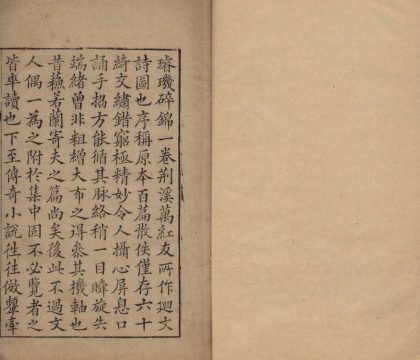 璿璣碎錦一卷荆溪萬紅友所作迴文
詩圖也序稱原本百篇散佚僅存六十
綺文繡錯窮極精妙令人攝心屏息口
誦手招方能循其脉絡稍一目瞬旋失
端緒曾非粗繒大布之得叅其機軸也
昔蘇若蘭寄夫之篇尚矣後此不過文
人偶一為之附於集中固不必覽者之
皆卒讀也下至傳奇小說徃徃倣顰牽